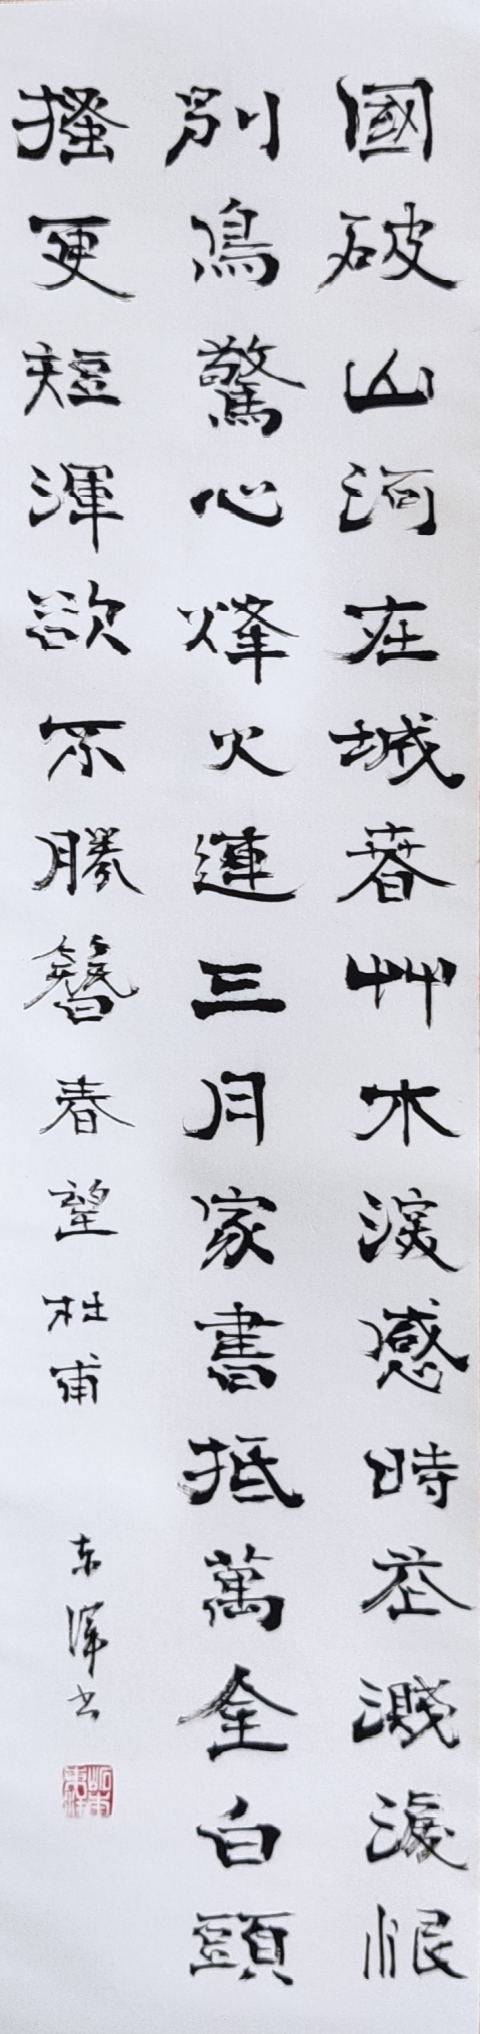 國破山河在城春艸木深感時花濺淚恨
別鳥驚心烽火連三月家書抵萬全白頭
搔更短渾欲不勝簪春望杜甫
东泽书